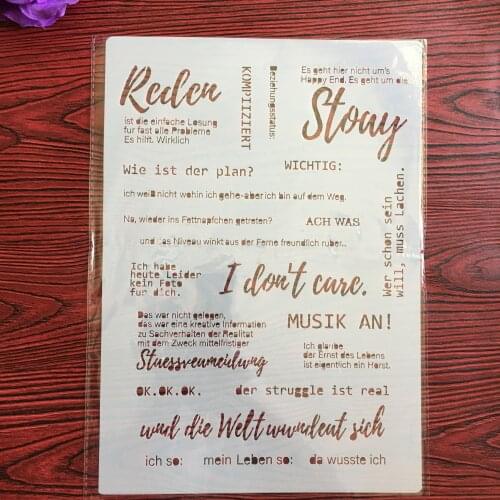 Reden
ist die einfache Losung
fur fast alle Probleme
Es hilft. Wirklich
KOMPIIZIERT
Beziehungsstatus:
Es geht hier nicht um's
Happy End. Es geht um die
Stouy
Wie ist der plan?
WICHTIG:
ich weiß nicht wohin ich gehe-aber ich bin auf dem Weg.
Na, wieder ins Fettnapfchen getreten?
ACH WAS
und das Niveau winkt aus der Ferne freundlich ruber...
Wer schon sein
will, muss Lachen.
Ich habe
heute Leider
kein Foto
fur dich.
I don't cure.
Das war nicht gelogen,
das war eine kreative Information
zu Sachverhalten der Realitat
mit dem Zweck mittelfristiger
Stuessveumeidung
MUSIK AN!
Ich glaube
der Ernst des Lebens
ist eigentlich ein Horst.
OK.OK.OK.
der struggle ist real
und die Welt wundeut sich
ich so:
mein Leben so:
da wusste ich